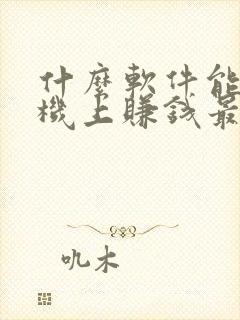 什麼軟件能
機上賺錢最
叽木